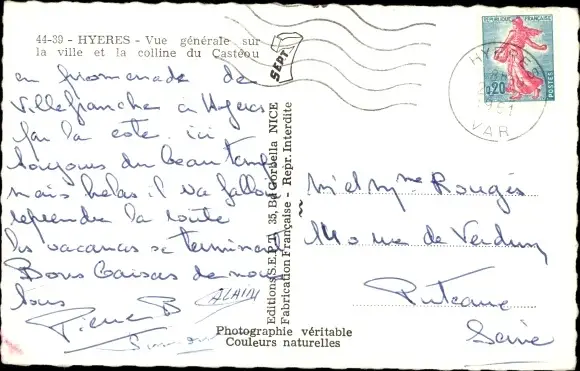 44-39 - HYERES - Vue générale sur
la ville et la colline du Castéou
en promenade de
Villefranche a Hyeres
par la cote. ici
toujours du beau temps
mais helas il va falloir
reprendre la route
les vacances se terminent
Bons baisers de nous
tous
Pierre B
ALAIN
Simone
Editions S.E.P.T. 35, Bd Gorbella NICE
Fabrication Française - Repr. Interdite
Photographie véritable
Couleurs naturelles
SEPT
REPUBLIQUE FRANÇAISE
0,20
POSTES
HYERES
VAR
M et Mme Rougès
rue de Verdun
Puteaux
Seine